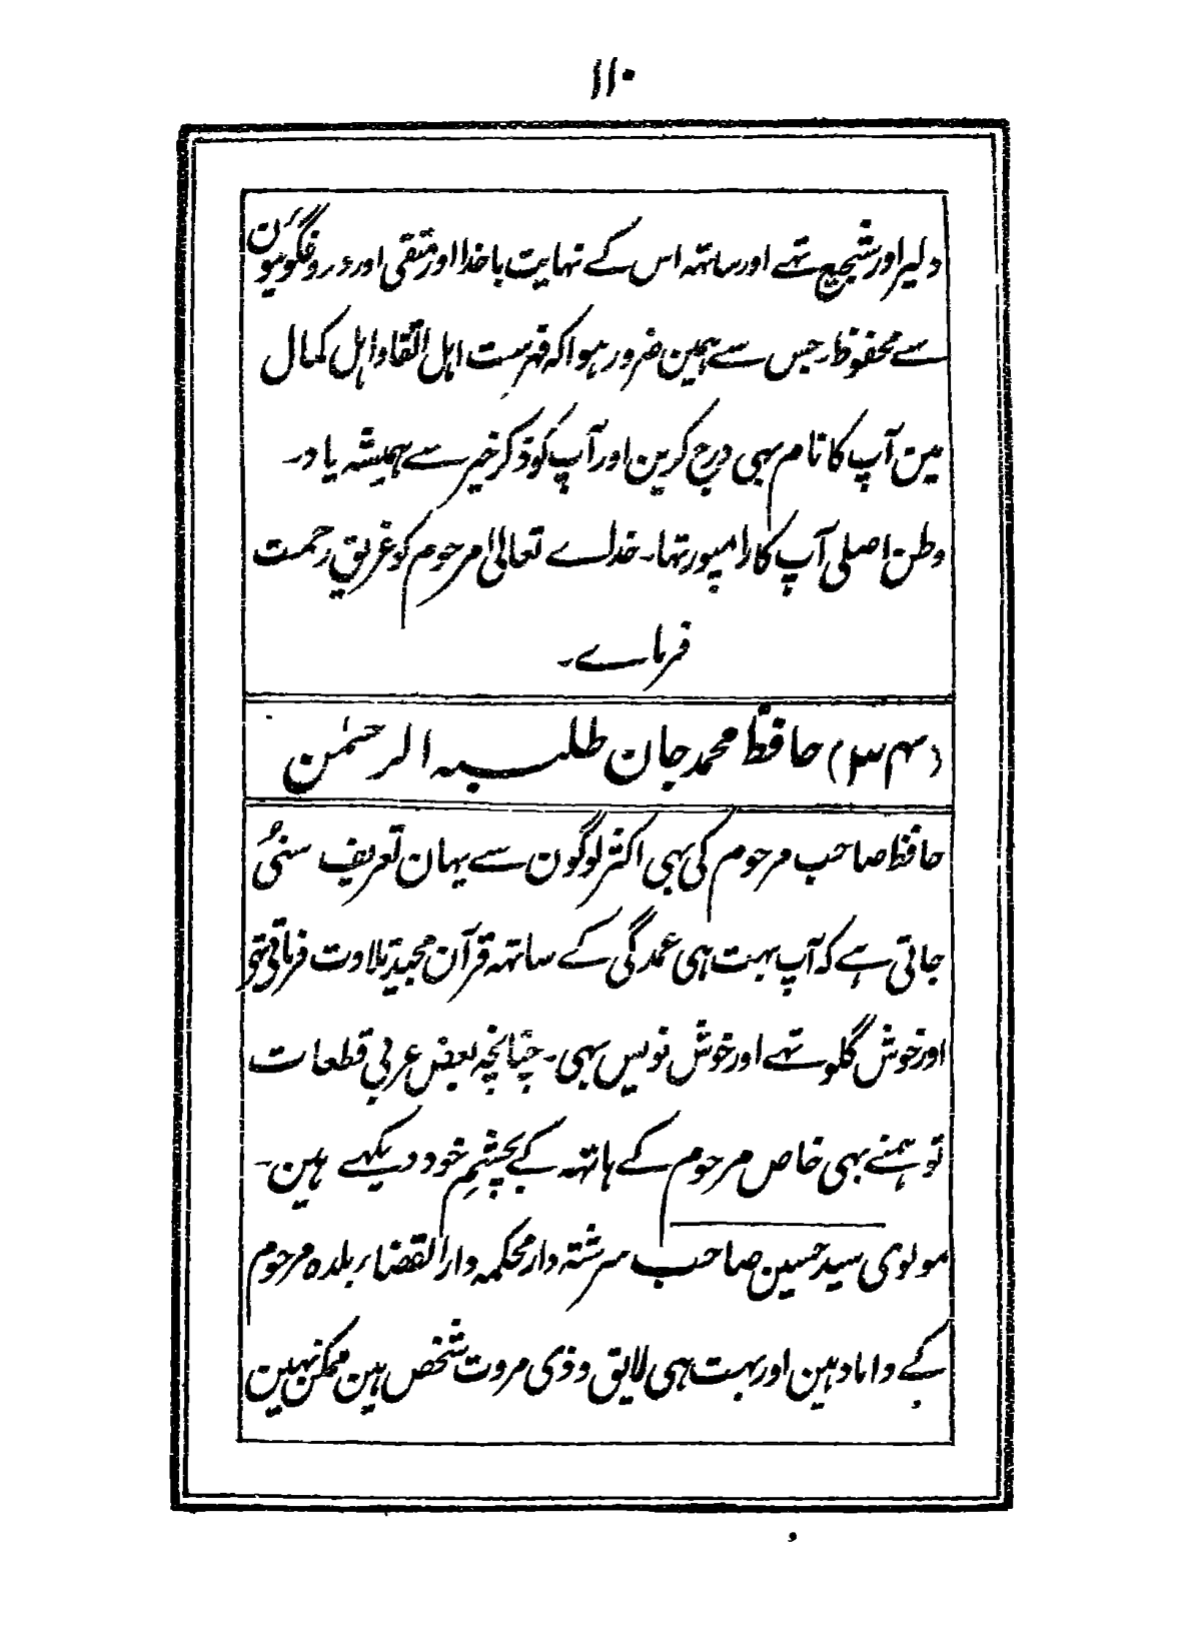 ۱۱۰
دلیر اور شجیع تہے اور ساتہہ اس کے نہایت باخدا اور متقی اور دروغگوئیون
سے محفوظ رجس سے ہمین ضرور ہوا کہ فہرست اہل اتقا و اہل کمال
مین آپ کا نام بہی درج کرین اور آپ کو ذکر خیر سے ہمیشہ یاد۔
وطن اصلی آپ کا رامپور تہا۔ خداے تعالیٰ مرحوم کو غریق رحمت
فرماے۔
(۳۴) حافظ محمد جان طلبہ الرحمٰن
حافظ صاحب مرحوم کی بہی اکثر لوگون سے یہان تعریف سنی
جاتی ہے کہ آپ بہت ہی عمدگی کے ساتہہ قرآن مجید تلاوت فرماتی تہی
اور خوش گلو تہے اور خوش نویس بہی۔ چنانچہ بعض عربی قطعات
تو ہمنے بہی خاص مرحوم کے ہاتہہ کے بچشمِ خود دیکہے ہین۔
مولوی سید حسین صاحب سرشتہ دار محکمہ دارالقضاء بلدہ مرحوم
کے داماد ہین اور بہت ہی لایق و ذی مروت شخص ہین ممکن نہین